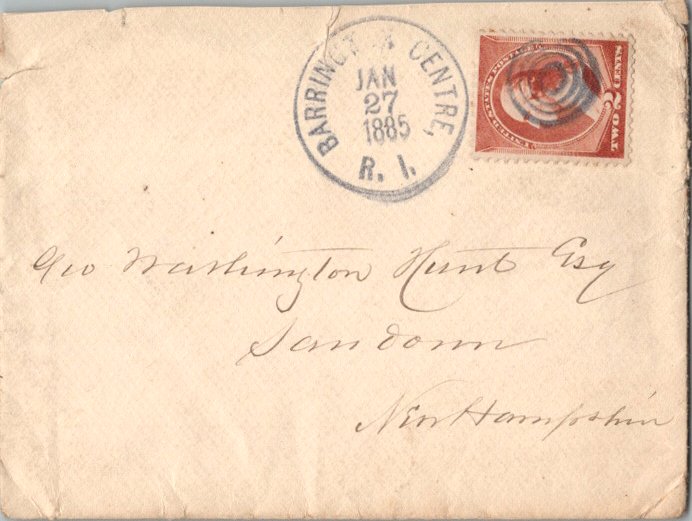 BARRINGTON CENTRE,
JAN
27
1885
R. I.
UNITED STATES POSTAGE
TWO 2 CENTS
Geo Washington Hunt Esq
Sandown
New Hampshire